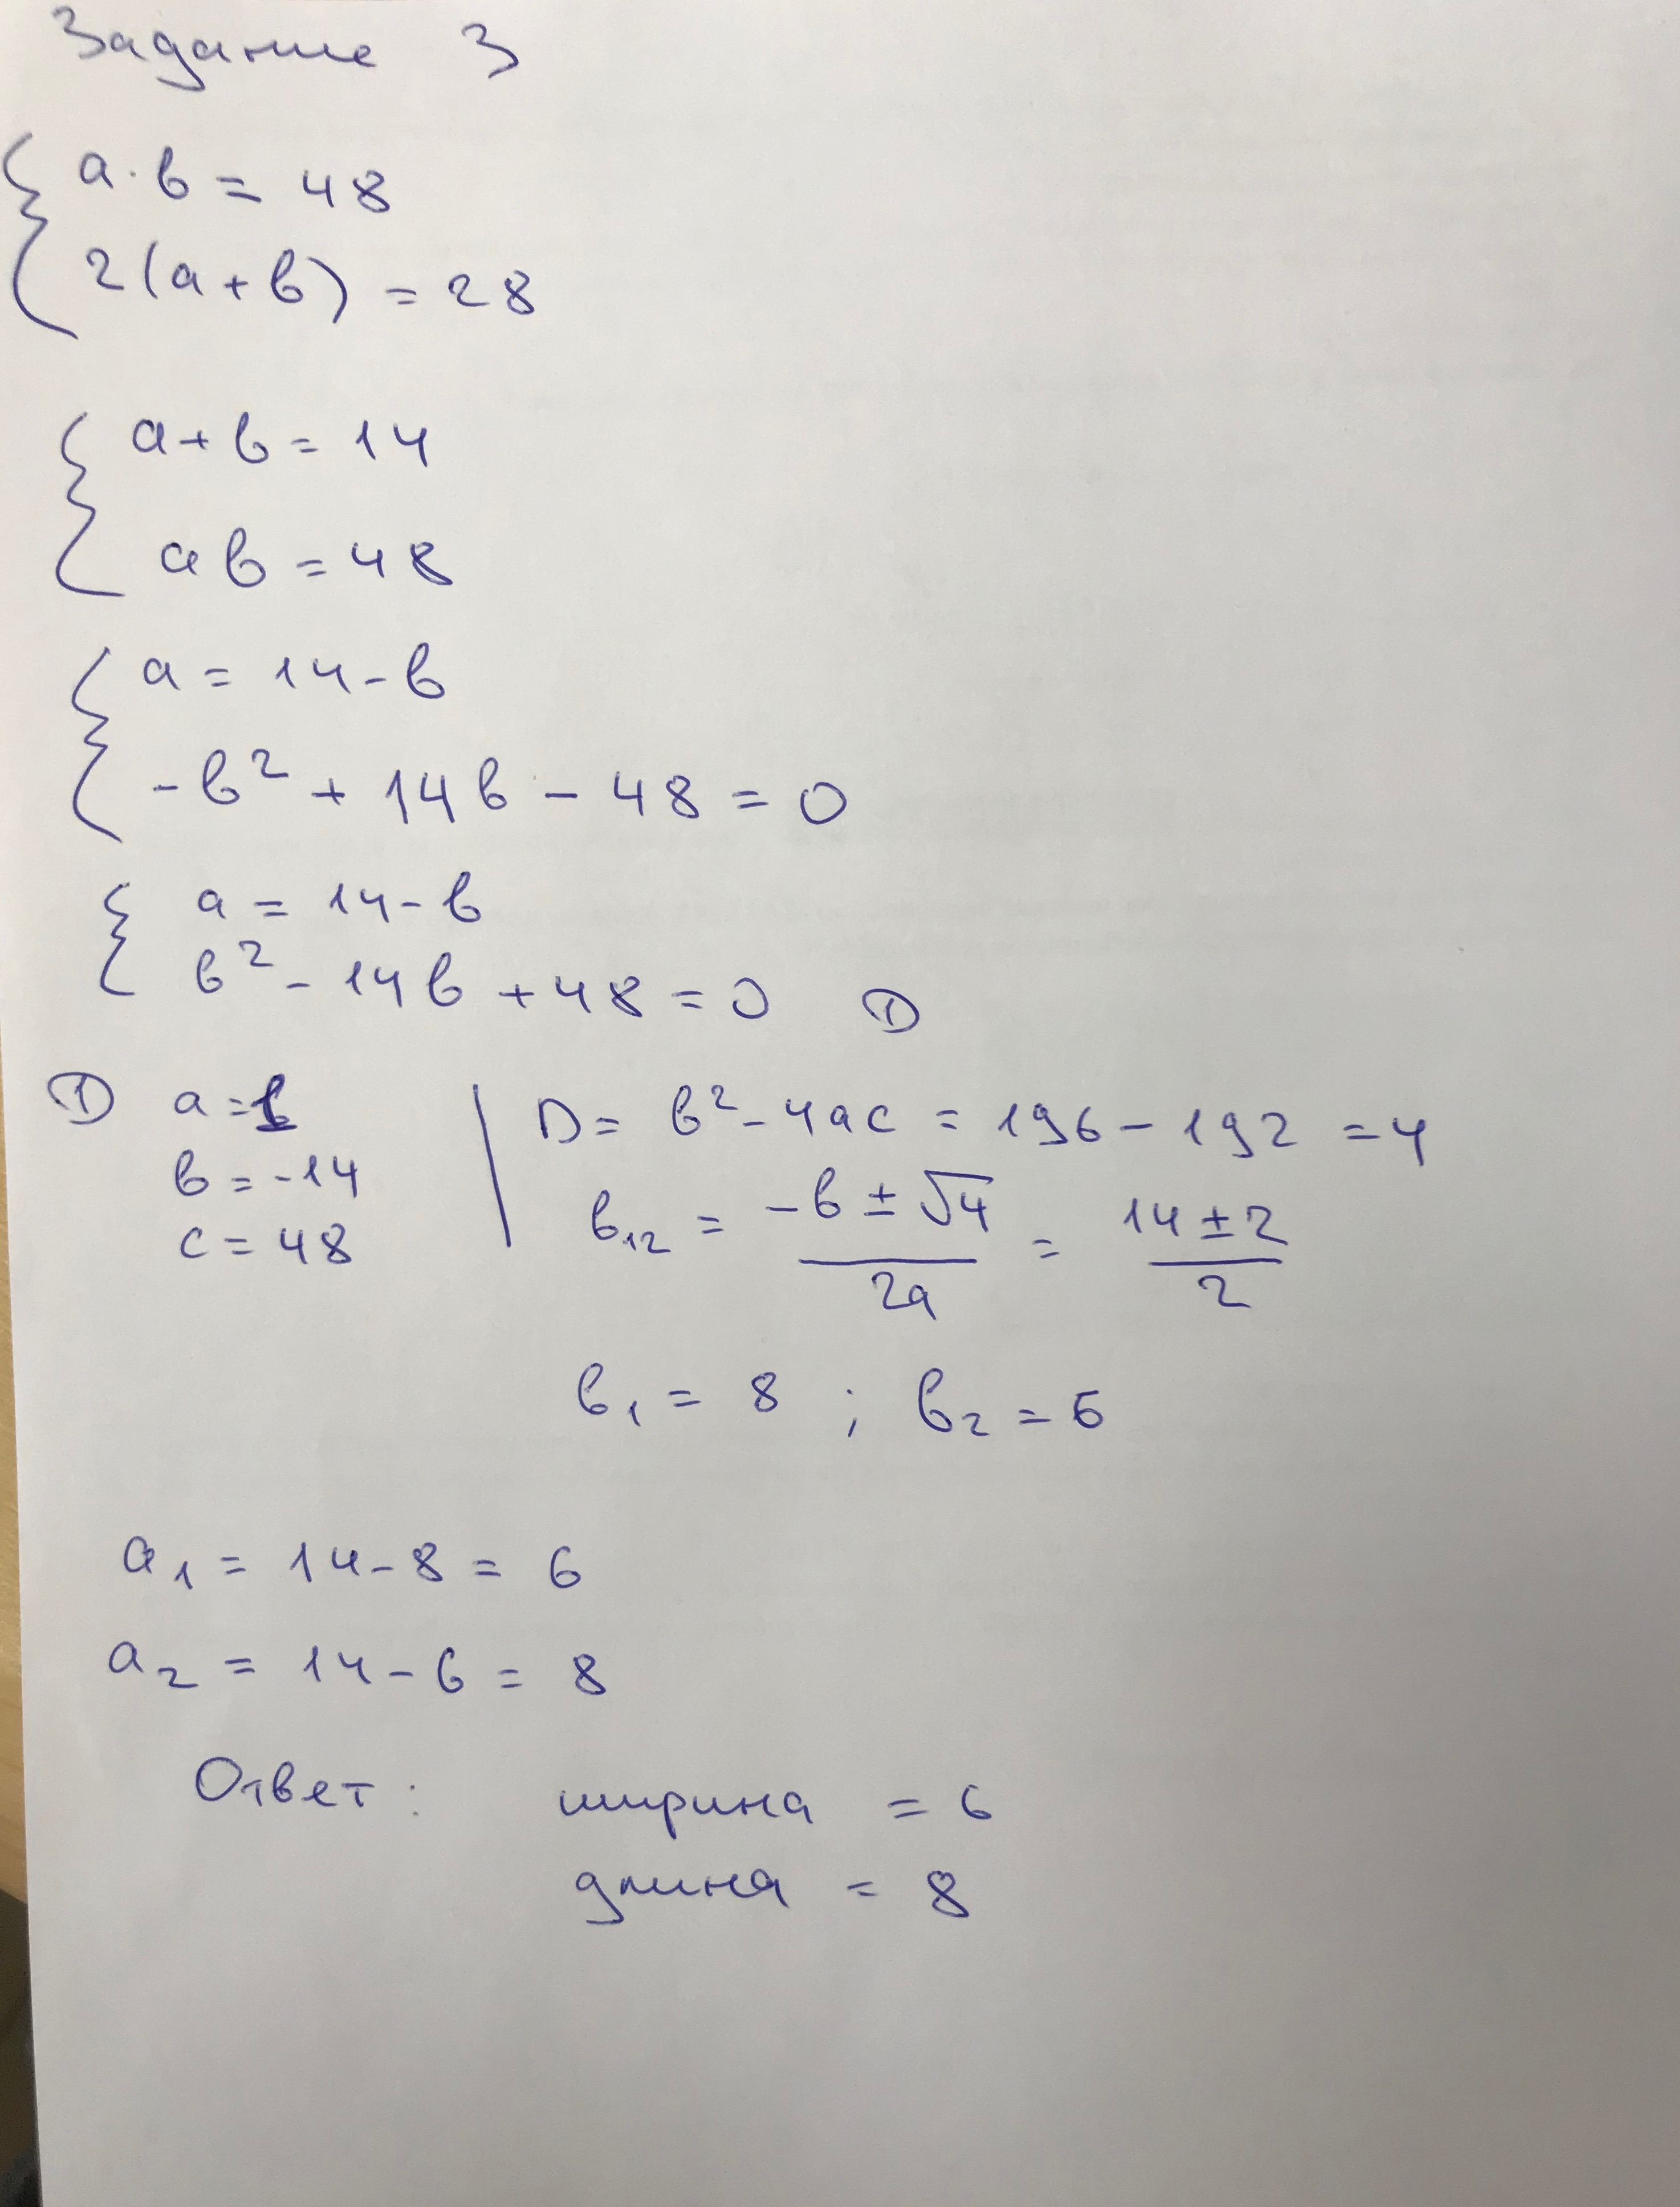 Задание 3
a · b = 48
2(a + b) = 28
a + b = 14
ab = 48
a = 14 - b
-b² + 14b - 48 = 0
a = 14 - b
b² - 14b + 48 = 0 ①
① a = 1
b = -14
c = 48
D = b² - 4ac = 196 - 192 = 4
b₁₂ = (-b ± √4)/2a = (14 ± 2)/2
b₁ = 8 ; b₂ = 6
a₁ = 14 - 8 = 6
a₂ = 14 - 6 = 8
Ответ : ширина = 6
длина = 8